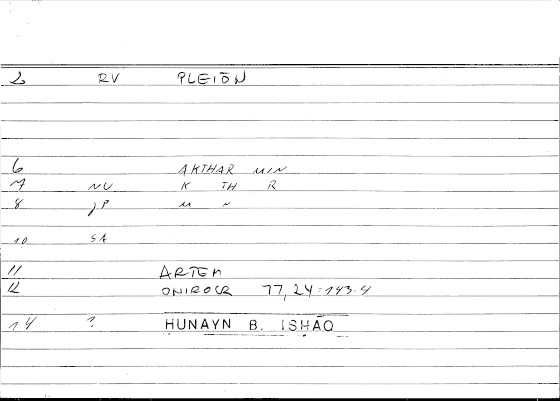 2 RV PLEIŌN
6 AKTHAR MIN
7 NU K TH R
8 JP M N
10 SA
11 ARTEM
12 ONIROCR 77,24=143.4
14 ? HUNAYN B. ISḤĀQ